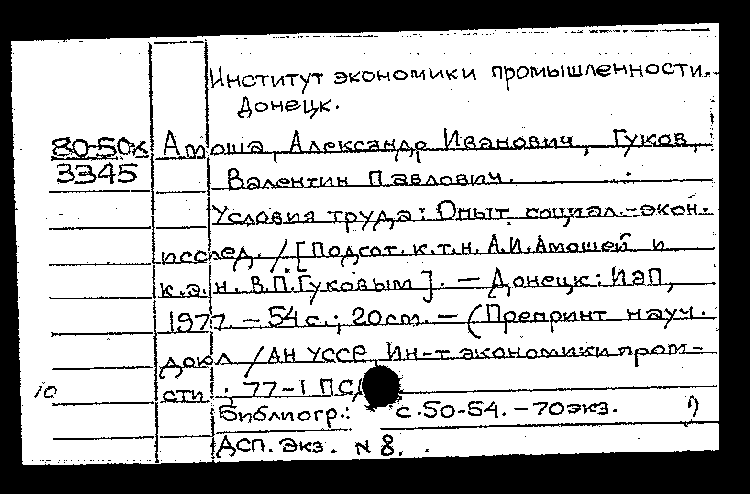 Институт экономики промышленности.
Донецк.
80-50к Амоша, Александр Иванович, Гуков,
3345 Валентин Павлович.
Условия труда: Опыт социал.-экон.
исслед. / [Подгот. к.т.н. А.И.Амошей и
к.э.н. В.П.Гуковым]. — Донецк: ИЭП,
1977. — 54 с.; 20см. — (Препринт науч.
докл / АН УССР, Ин-т экономики пром-
10 сти ; 77-1 ПС
Библиогр.: с.50-54. — 70экз.
ДСП. Экз. N 8.